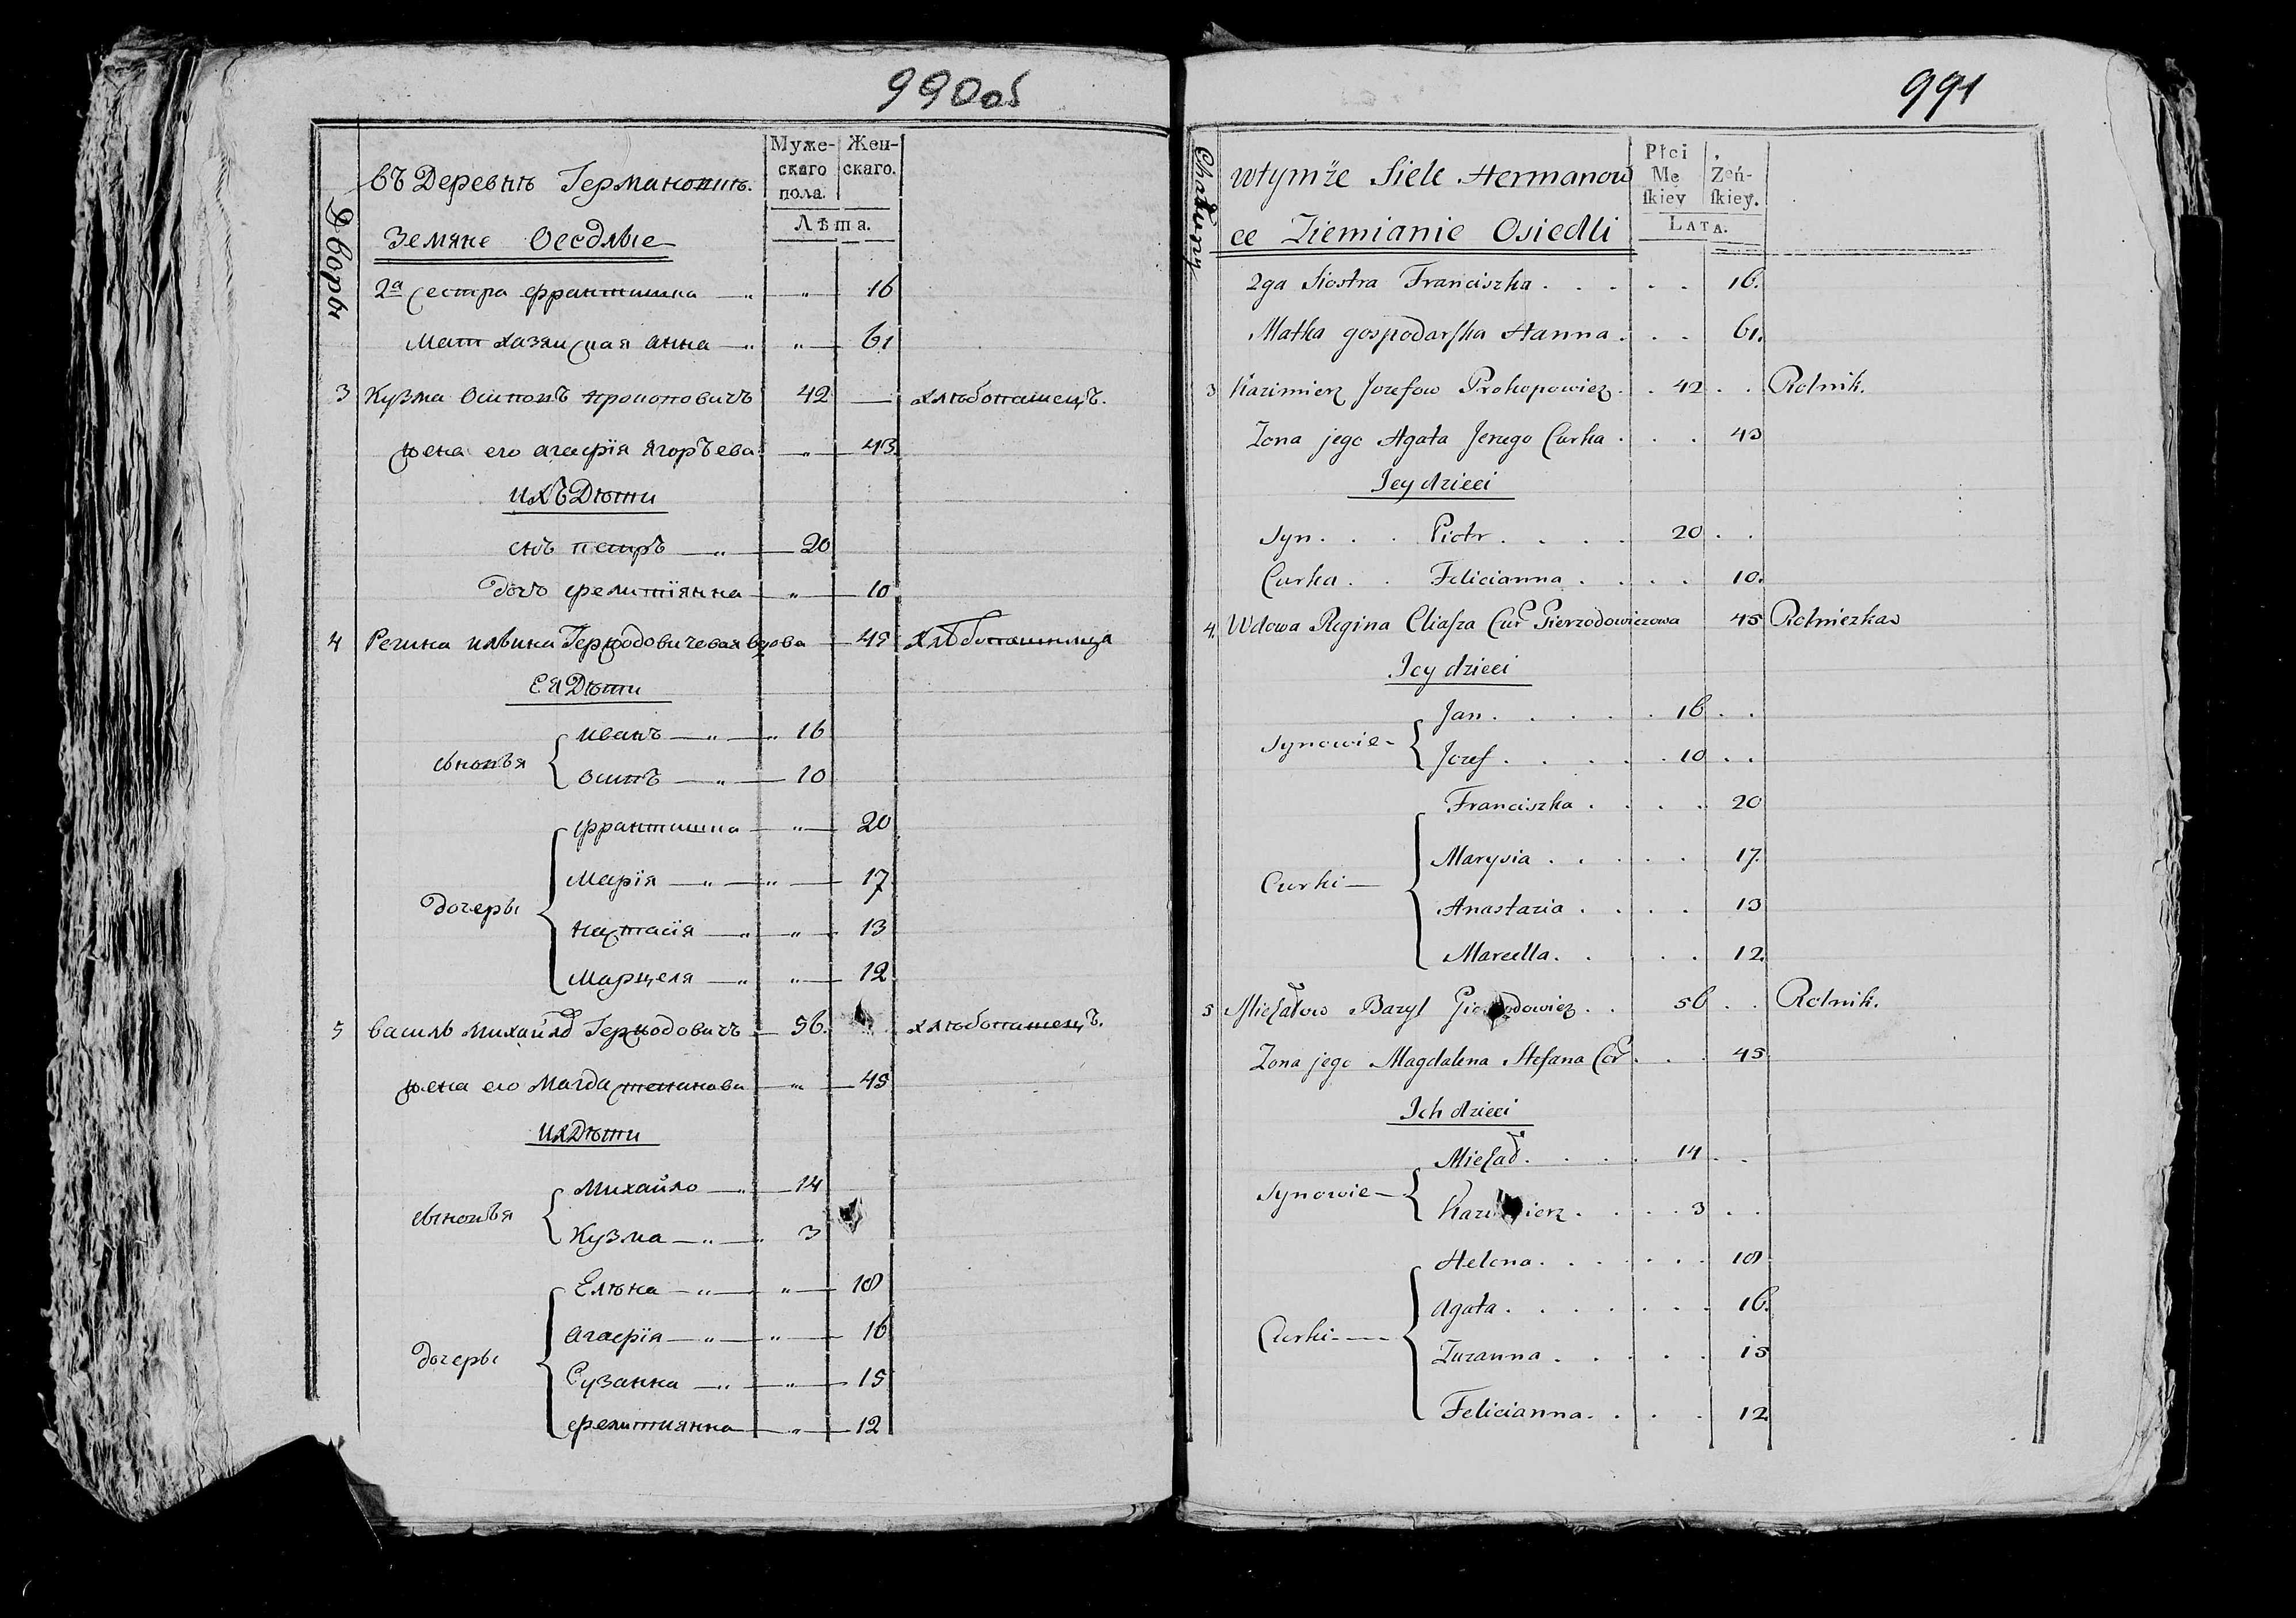 990об
Дворы
въ Деревнѣ Германович.
Земяне Оседлые
Муже-
скаго
пола.
Жен-
скаго.
Лѣта.
2а сестра франтишка — „ — „ — 16
мат хазяйская анна — „ „ — 61
3 Кузма Осиповъ прокоповичъ 42 — хлѣбопашецъ.
жена его агафія Ягоръева „ — 43
ихъ Дѣти
снъ петръ — „ — 20
дочъ фелитіянна — „ — 10
4 Регина ильина Гержодовичевая вдова — 45 хлѣбопашница
ЕЯ Дѣти
сыновья
иванъ — „ — „ 16
осипъ — „ — 10
дочеры
франтишка — „ — 20
Марія — „ — „ — 17
настасія — „ — „ — 13
Марцеля — „ „ — 12
5 василь михайлов Гержодовичъ — 56. хлѣбопашецъ.
жена его Магда степанова — „ — 45
их Дѣти
сыновья
Михайло — „ — 14
Кузма — „ — „ 3
дочеры
Елѣна — „ — „ — 18
Агафія — „ — „ — 16
Сузанна — „ — „ — 15
фелитиянна — „ — 12
991
Chałupy
wtymże Siele Hermanow
ce Ziemianie Osiedli
Płci
Mę
ſkiey
Żeń-
ſkiey.
LATA.
2ga Siostra Franciszka . . . . . 16.
Matka gospodarſka Hanna . . . 61.
3 Kazimierz Jozefow Prokopowicz . . 42 . . Rolnik.
Zona jego Agata Jerzego Curka . . . 43
Jey dzieci
Syn . . . Piotr . . . . 20 . .
Curka . . Felicianna . . . . 10.
4. Wdowa Regina Eliaſza Cur Gierzodowiczowa 45 Rolniczka
Jey dzieci
Synowie —
Jan . . . . . . 16 . .
Jozef . . . . . 10 . .
Curki —
Franciszka . . . . 20
Marysia . . . . . 17.
Anastazia . . . . 13
Marcella . . . . 12.
5 Michałow Bazyl Gierzodowicz . . 56 . . Rolnik.
Zona jego Magdalena Stefana Cor . . . 45
Ich dzieci
Synowie —
Michał . . . . 14 . .
Kazimierz . . . . 3 . .
Curki —
Helena . . . . . . . 18.
Agata . . . . . . . 16.
Zuzanna . . . . . 15
Felicianna . . . . 12